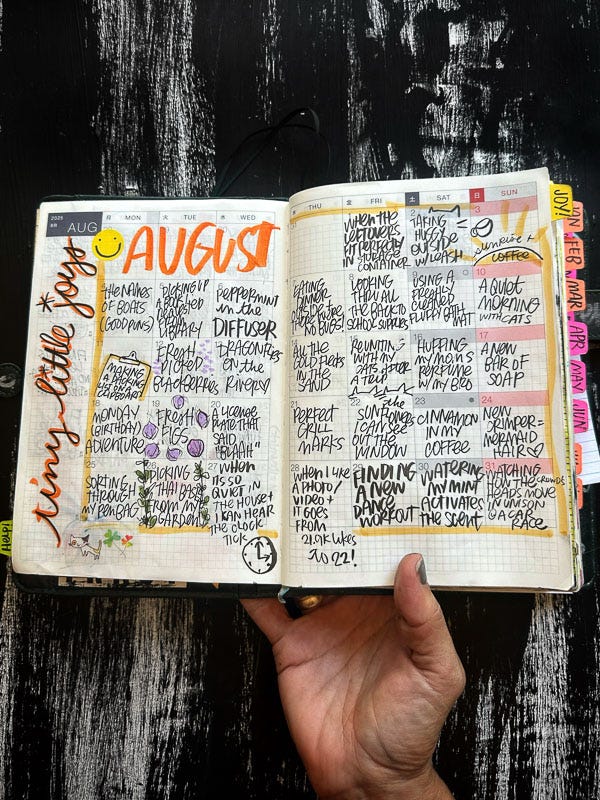 2025
8月 AUG
月 MON
火 TUE
水 WED
木 THU
金 FRI
土 SAT
日 SUN
AUGUST
tiny little joys
WHEN THE
LEFTOVERS
FIT PERFECTLY
IN STORAGE
CONTAINER
2
TAKING
OUTSIDE
W/LEASH
3
sunrise +
COFFEE
THE NAMES
OF BOATS
(GODPUNS)
PICKING UP
LIBRARY
6
PEPPERMINT
in the
DIFFUSER
EATING
DINNER
NO BUGS!
LOOKING
THRU ALL
THE BACK TO
SCHOOL SUPPLIES
USING A
FRESHLY
CLEANED
FLUFFY BATH
MAT
10
A QUIET
MORNING
WITH CATS
MAKING
A PACKING
LIST ON A
CLIPBOARD
12
FRESH
PICKED
BLACKBERRIES
13
DRAGONFLIES
ON the
RIVER
14
ALL THE
GOLD FLECKS
IN THE
SAND
REUNITING
WITH MY
CATS AFTER
A TRIP
16
HUFFING
MY MOM'S
PERFUME
17
A NEW
BAR OF
SOAP
18
MONDAY
(BIRTHDAY)
ADVENTURE
19
FRESH
FIGS
20
A LICENSE
PLATE THAT
SAID
"BLAAH"
21
PERFECT
GRILL
MARKS
22
SUNFLOWERS
I CAN SEE
OUT THE
WINDOW
23
CINNAMON
IN MY
COFFEE
24
NEW
CRIMPER =
MERMAID
HAIR
25
SORTING
THROUGH
MY PEN BAG
26
PICKING
THAI BASIL
FROM MY
GARDEN
27
WHEN
ITS SO
QUIET IN
THE HOUSE +
I CAN HEAR
THE CLOCK
TICK
28
WHEN I LIKE
A PHOTO/
VIDEO +
IT GOES
FROM
21.9K LIKES
TO 22!
29
FINDING
A NEW
DANCE
WORKOUT
30
WATERING
MY MINT
ACTIVATES
THE SCENT
31
WATCHING
HOW THE CROWDS
HEADS MOVE
IN UNISON
@ A CAR
RACE
JOY!
JAN
FEB
MAR
APR
MAY
JUN
Help!